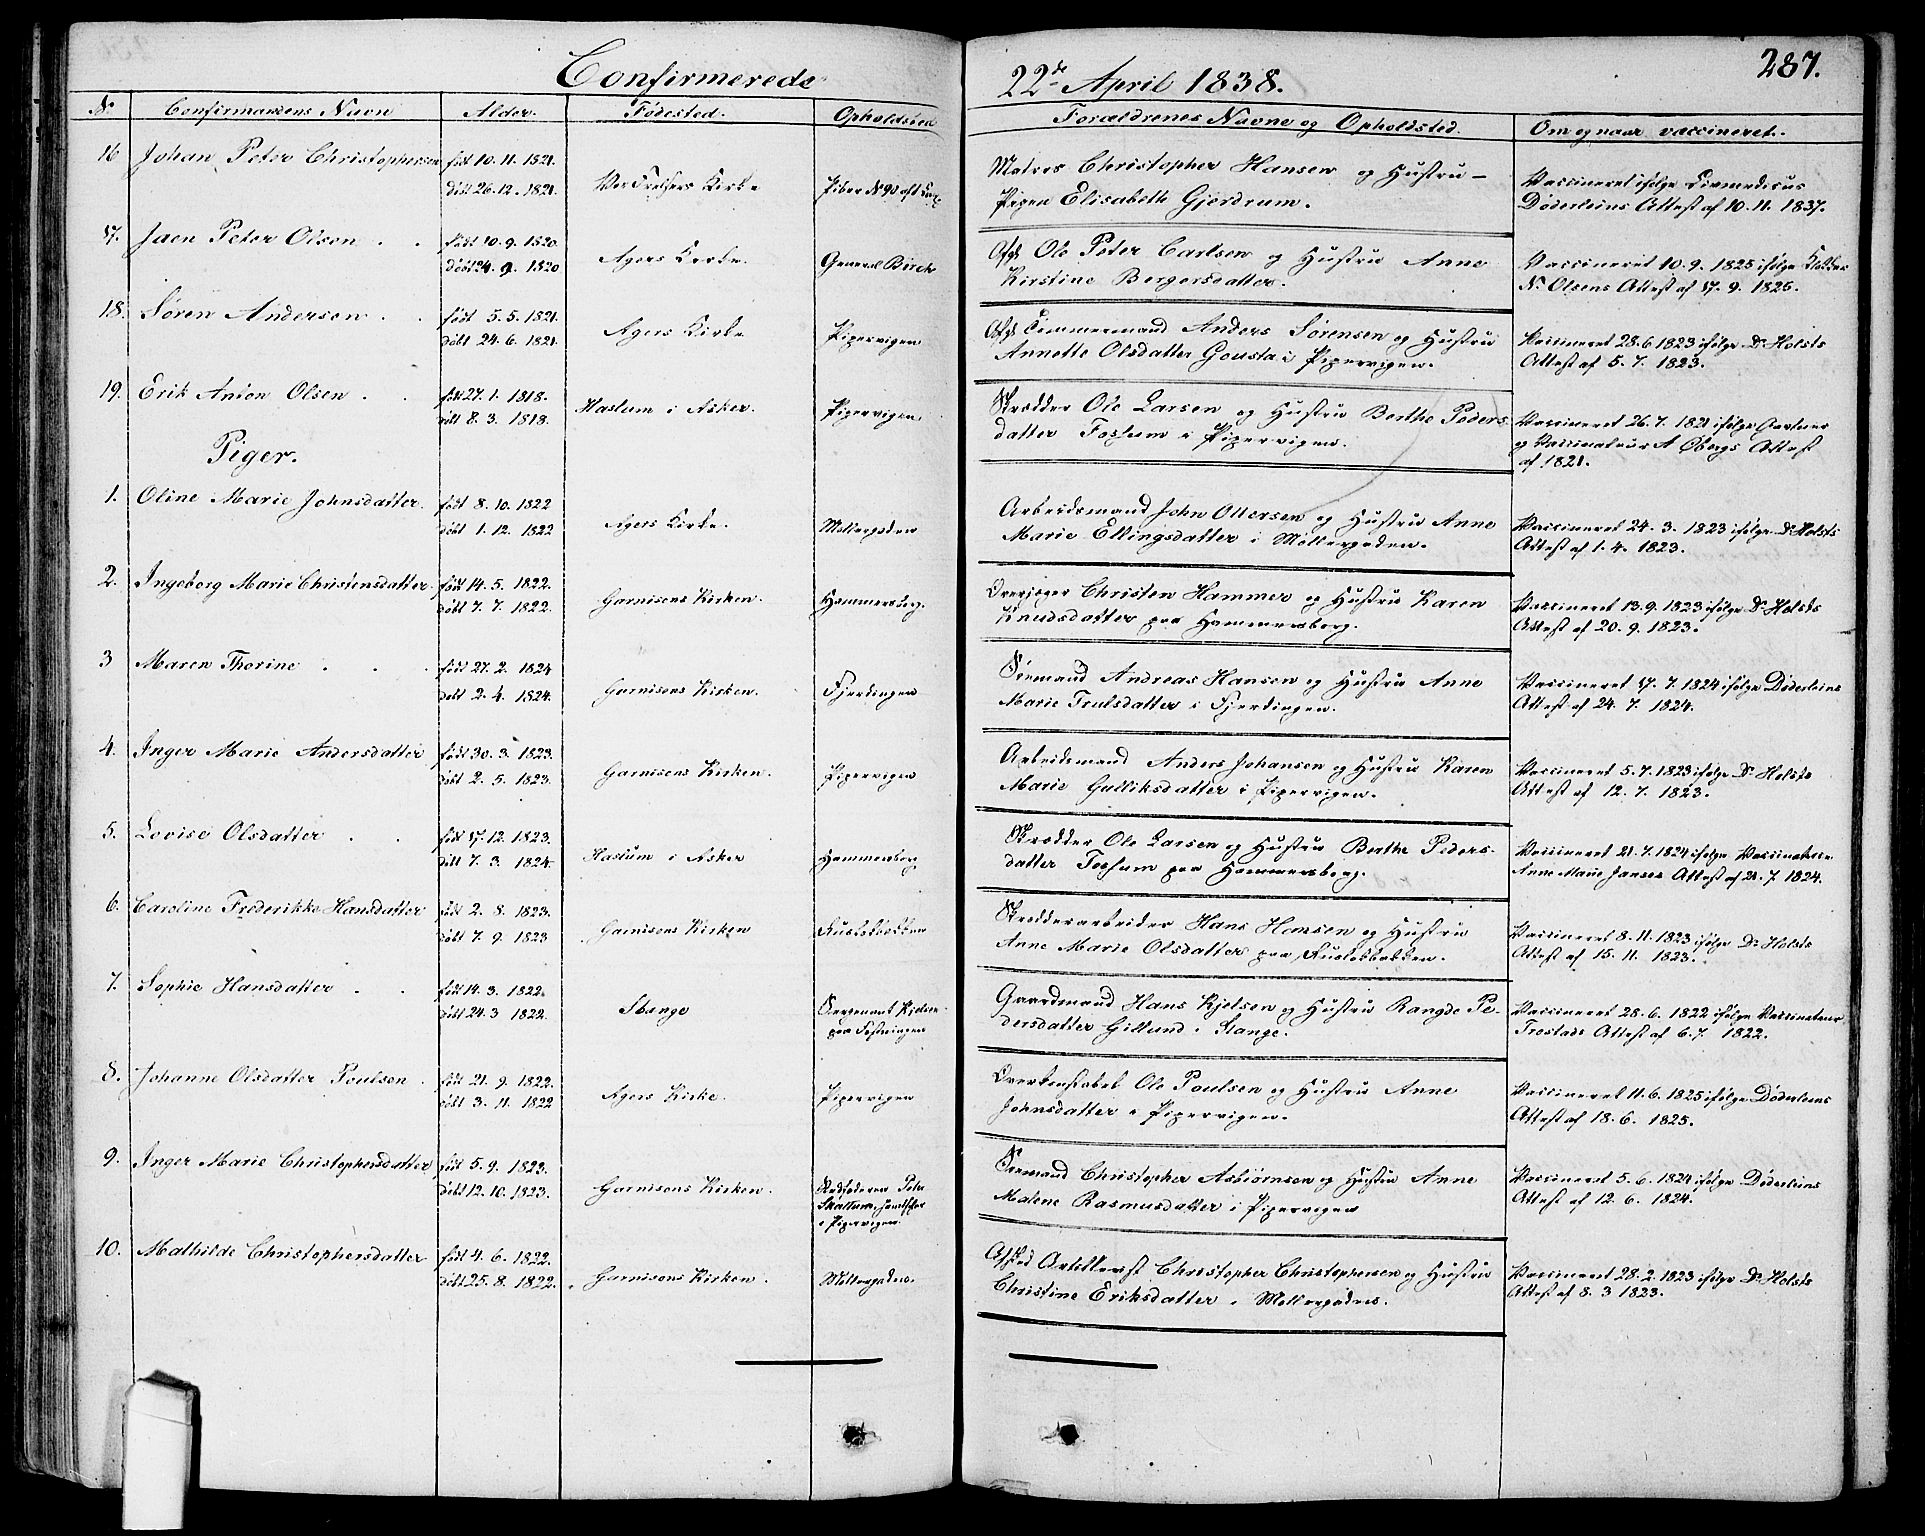 Confirmerede
22de April 1838.
287.
No Confirmandens Navn Alder. Födested. Opholdsted Forældrenes Navne og Opholdsted. Om og naar vaccineret.
16 Johan Peter Christophersen født 10. 11. 1821. Matros Christopher Hansen og Hustru
døbt 26. 12. 1821. Vor Frelsers Kirke Piber N 90 Vaccineret ifølge
Pigen Elisabeth Gjerdrum. Døderleins Attest af 10. 11. 1837.
17. Jaen Peter Olsen født 10. 9. 1820. Afgl Ole Peter Carlsen og Hustru Anne
døbt 24. 9. 1820 Agers Kirke. General Birch Vaccineret 10. 9. 1825 ifølge Klokker
Kirstine Bergersdatter. N. Olsens Attest af 17. 9. 1826.
18. Søren Andersen født 5. 5. 1821. Afgl Timmermand Anders Sørensen og Hustru
døbt 24. 6. 1821. Agers Kirke Pipervigen Vaccineret 28. 6 1823 ifølge Dr Holsts
Annette Olsdatter Gousta i Pipervigen. Attest af 5. 7. 1823.
19. Erik Anton Olsen født 27. 1. 1818. Skrædder Ole Larsen og Hustru Berthe Peders
døbt 8. 3. 1818. Haslum i Asker. Pipervigen Vaccineret 26. 7. 1821 ifølge
datter Fossum i Pipervigen. og Vaccinateur A Øbergs Attest
af 1821.
Piger.
1. Oline Marie Johnsdatter. født 8. 10. 1822 Arbeidsmand John Ottersen og Hustru Anne
døbt 1. 12. 1822 Agers Kirke. Møllergaden Vaccineret 24. 3. 1823 ifølge Dr Holsts
Marie Ellingsdatter i Møllergaden. Attest af 1. 4. 1823.
2. Ingeborg Marie Christensdatter. født 14. 5. 1822. Overjæger Christen Hammer og Hustru Karen
døbt 7. 7. 1822. Garnisons Kirken. Hammersborg. Vaccineret 13. 9. 1823 ifølge Dr Holsts
Knudsdatter paa Hammersborg. Attest af 20. 9. 1823.
3 Maren Thorine født 27. 2. 1824 Sømand Andreas Hansen og Hustru Anne
døbt 2. 4. 1824. Garnisons Kirken. Fjerdingen Vaccineret 17. 7. 1824 ifølge Døderleins
Marie Trulsdatter i Fjerdingen. Attest af 24. 7. 1824.
4. Inger Marie Andersdatter født 30. 3. 1823. Arbeidsmand Anders Johansen og Hustru Karen
døbt 2. 5. 1823. Garnisons Kirken. Pipervigen Vaccineret 5. 7. 1823 ifølge Dr Holsts
Marie Gulliksdatter i Pipervigen. Attest af 12. 7. 1823.
5. Lovise Olsdatter født 17. 12. 1823. Skrædder Ole Larsen og Hustru Berthe Peders-
døbt 7. 3. 1824 Haslum i Asker Hammersborg Vaccineret 21. 7. 1824 ifølge
datter Fossum paa Hammersborg. Anne Marie Jansens Attest af 21. 7. 1824.
6. Caroline Frederikke Hansdatter født 2. 8. 1823. Skrædderarbeider Hans Hansen og Hustru
døbt 7. 9. 1823 Garnisons Kirken Ruseløkbakken Vaccineret 8. 11. 1823 ifølge Dr Holsts
Anne Marie Olsdatter paa Ruseløkbakken. Attest af 15. 11. 1823.
7. Sophie Hansdatter født 14. 3. 1822. Gaardmand Hans Kjelsen og Hustru Rangde Pe-
døbt 24. 3 1822. Stange Sergeant Kielsen Vaccineret 28. 6. 1822 ifølge Vaccinateur
paa Fæstningen dersdatter Gillund i Stange. Trostads Attest af 6. 7. 1822.
8. Johanne Olsdatter Poulsen født 21. 9. 1822. Overkonstabel Ole Poulsen og Hustru Anne
døbt 3. 11. 1822 Agers Kirke. Pipervigen Vaccineret 11. 6. 1825 ifølge Døderleins
Johnsdatter i Pipervigen. Attest af 18. 6. 1825.
9. Inger Marie Christophersdatter født 5. 9. 1823. Sømand Christopher Asbiørnsen og Hustru Anne
døbt 12. 10. 1823. Garnisons Kirken. Stedfaderen Peter Vaccineret 5. 6. 1824 ifølge Døderleins
Skallum, Malene Rasmusdatter i Pipervigen Attest af 12. 6. 1824.
i Pipervigen.
10. Mathilde Christophersdatter født 4. 6. 1822. Afsked Artillerist Christopher Christophersen og Hustru
døbt 25. 8. 1822. Garnisons Kirken. Møllergaden. Vaccineret 28. 2. 1823 ifølge Dr Holsts
Christine Eriksdatter i Møllergaden. Attest af 8. 3 1823.